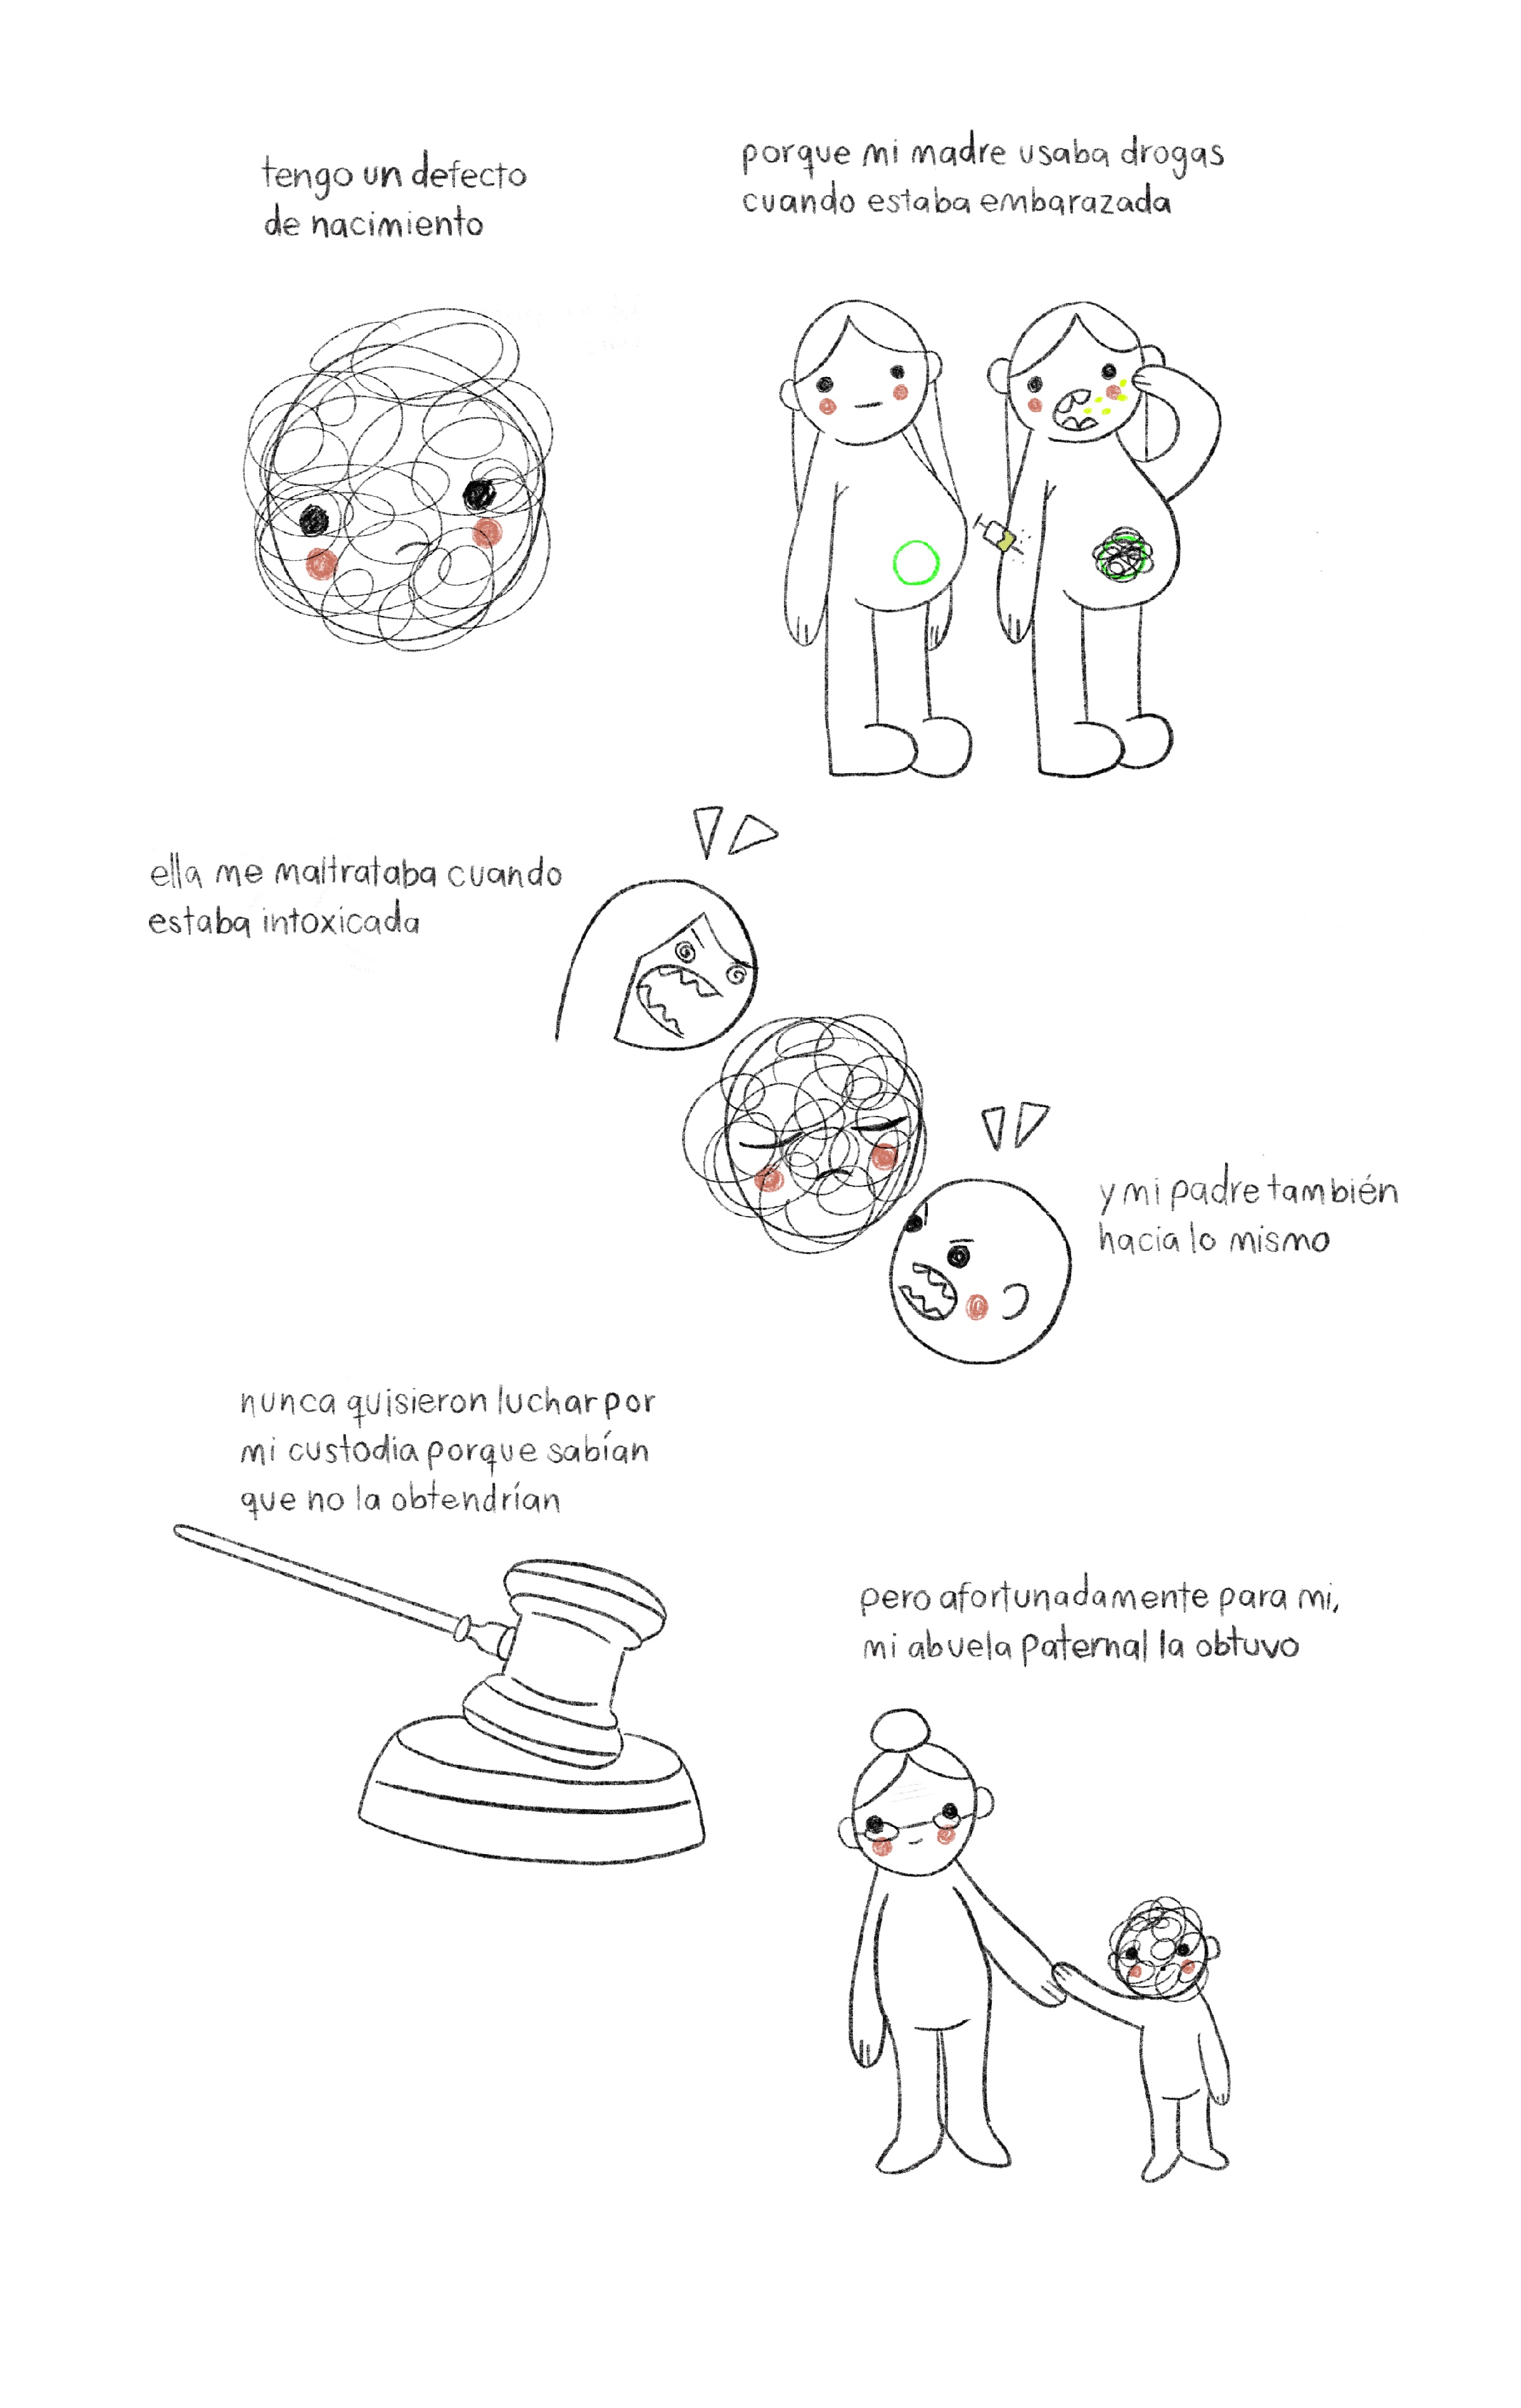 tengo un defecto
de nacimiento
porque mi madre usaba drogas
cuando estaba embarazada
ella me maltrataba cuando
estaba intoxicada
y mi padre también
hacia lo mismo
nunca quisieron luchar por
mi custodia porque sabían
que no la obtendrían
pero afortunadamente para mi,
mi abuela paternal la obtuvo